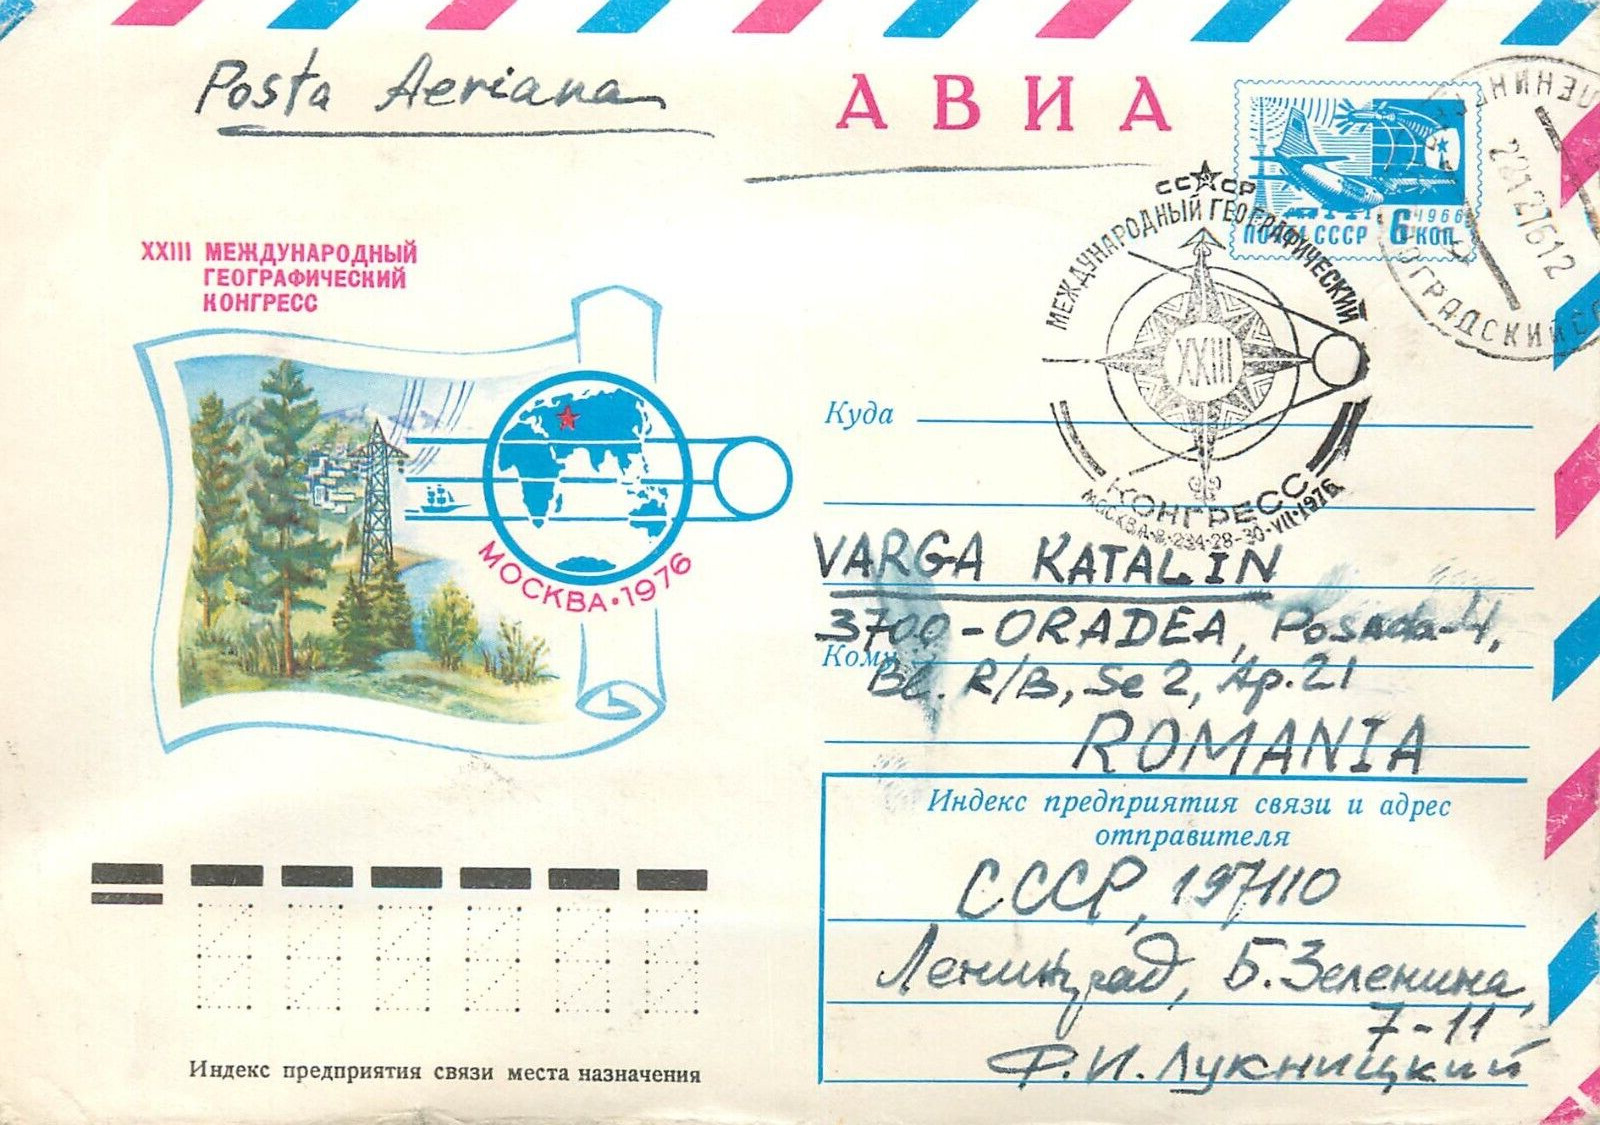 Posta Aeriana
АВИА
1966
ПОЧТА СССР 6 КОП.
28127612
СССР
МЕЖДУНАРОДНЫЙ ГЕОГРАФИЧЕСКИЙ
XXIII
КОНГРЕСС
28-30·VII·1976
XXIII МЕЖДУНАРОДНЫЙ
ГЕОГРАФИЧЕСКИЙ
КОНГРЕСС
МОСКВА·1976
Куда
VARGA KATALIN
3700-ORADEA, Posada-4,
Кому
Bl. R/B, Sc 2, Ap.21
ROMANIA
Индекс предприятия связи и адрес
отправителя
СССР, 197110
Ленинград, Б.Зеленина,
7-11
Ф.И.Лукницкий
Индекс предприятия связи места назначения